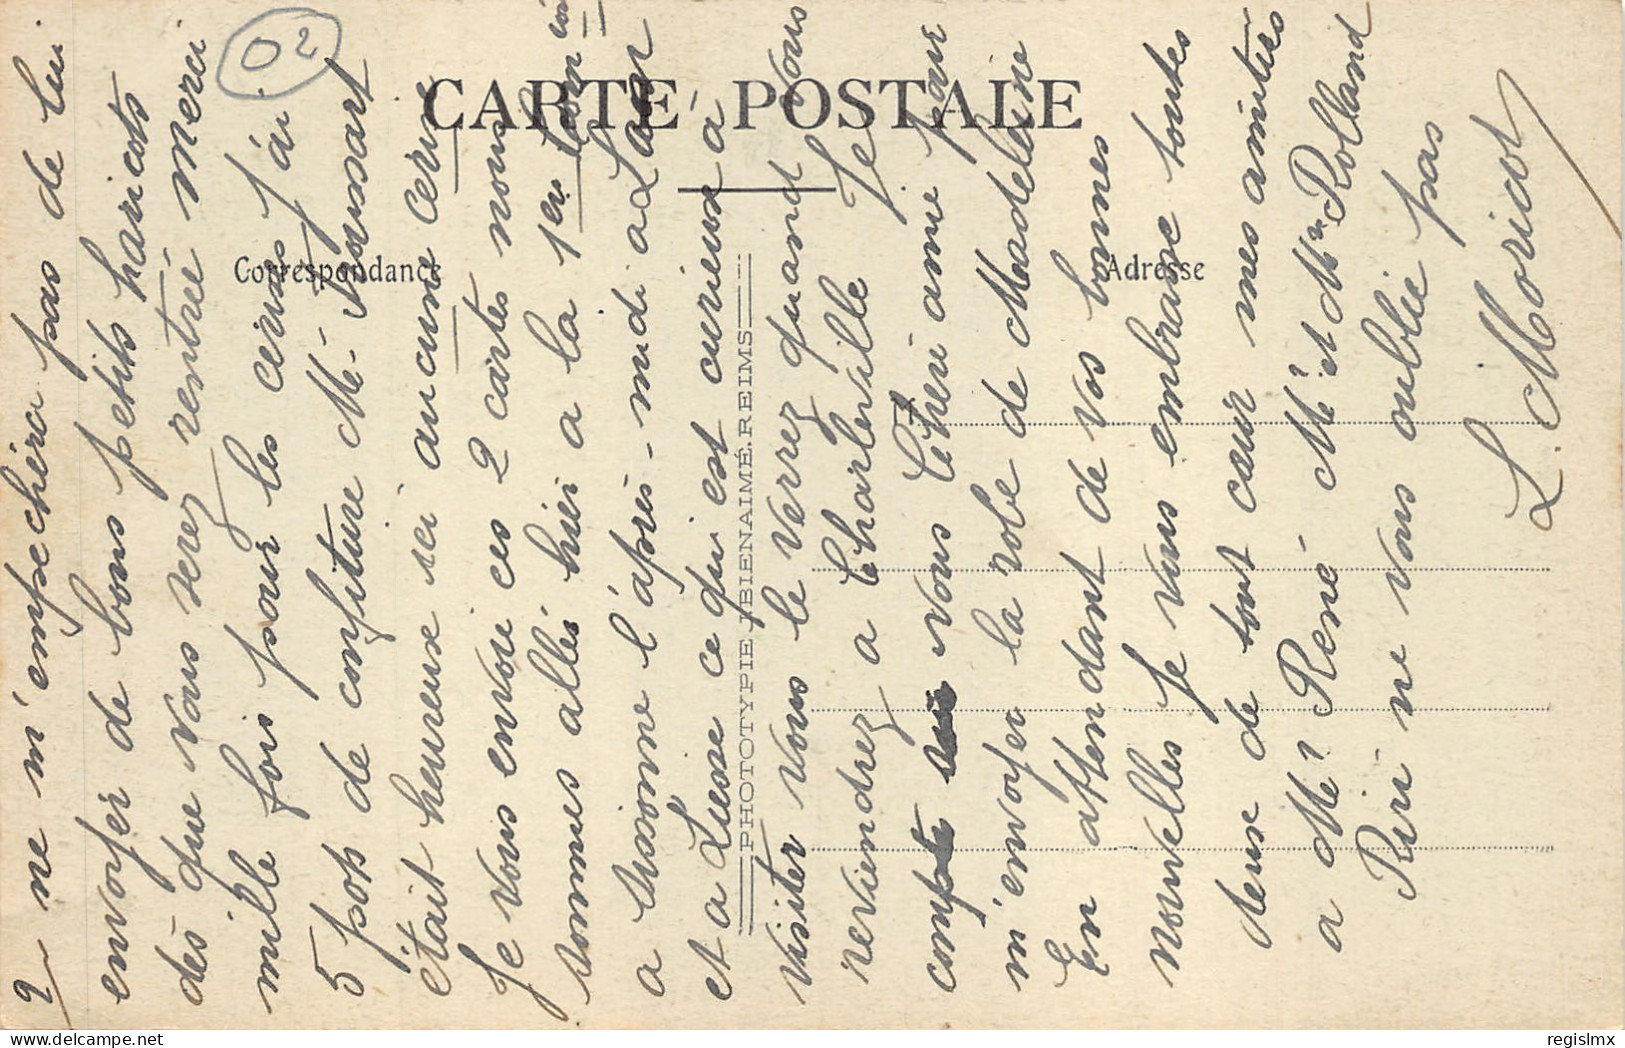 CARTE POSTALE
Correspondance
Adresse
PHOTOTYPIE J. BIENAIMÉ. REIMS
02
2 ne m'empechéra pas de lui
envoyer de bons petits haricots
dès que vous serez rentrée merci
mille fois pour les cerises j'ai
5 pots de confiture Me
était heureuse ici aucune cerise
Je vous envoie ces 2 cartes nous
sommes allés hier a la 1er Com ion
a l'après-midi a Laon
et a Liesse ce qui est curieux a
visiter vous le verrez quand vous
reviendrez a Charleville Je
compte vous Chéri amie pour
m'envoyer la robe de Madeleine
En attendant de vos bonnes
nouvelles Je vous embrasse toutes
deux de tout cœur mes amitiés
a Me René Mr et Mme Rolland
Riri ne vous oublie pas
L. Moricot
regislmx